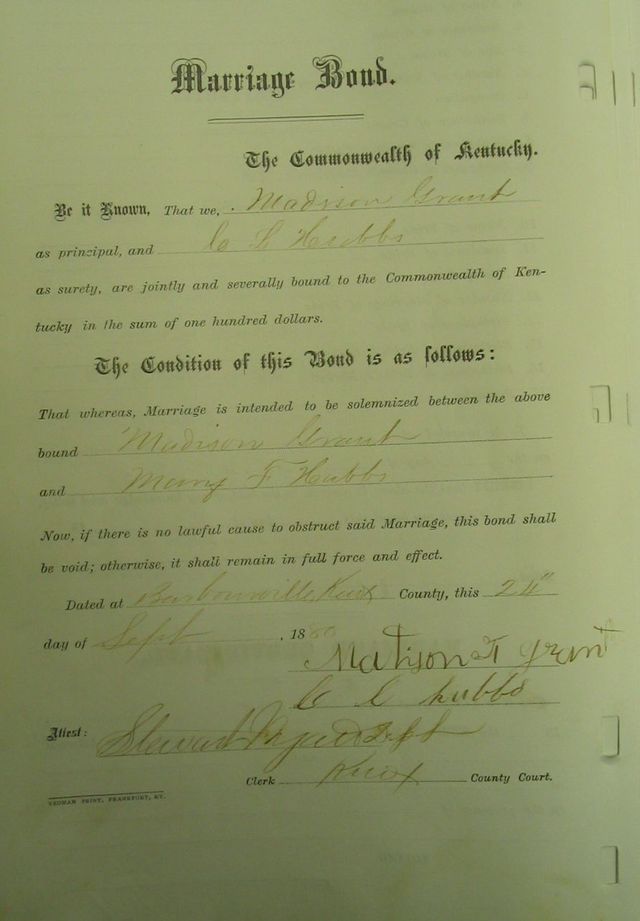 Marriage Bond.
The Commonwealth of Kentucky.
Be it Known, That we, Madison Grant
as principal, and C L Hubbs
as surety, are jointly and severally bound to the Commonwealth of Ken-
tucky in the sum of one hundred dollars.
The Condition of this Bond is as follows:
That whereas, Marriage is intended to be solemnized between the above
bound Madison Grant
and Mary F Hubbs
Now, if there is no lawful cause to obstruct said Marriage, this bond shall
be void; otherwise, it shall remain in full force and effect.
Dated at Barbourville, Knox County, this 24"
day of Sept, 1880
Matison grant
C L hubbs
Attest: Stewart
Clerk Knox County Court.
YEOMAN PRINT, FRANKFORT, KY.